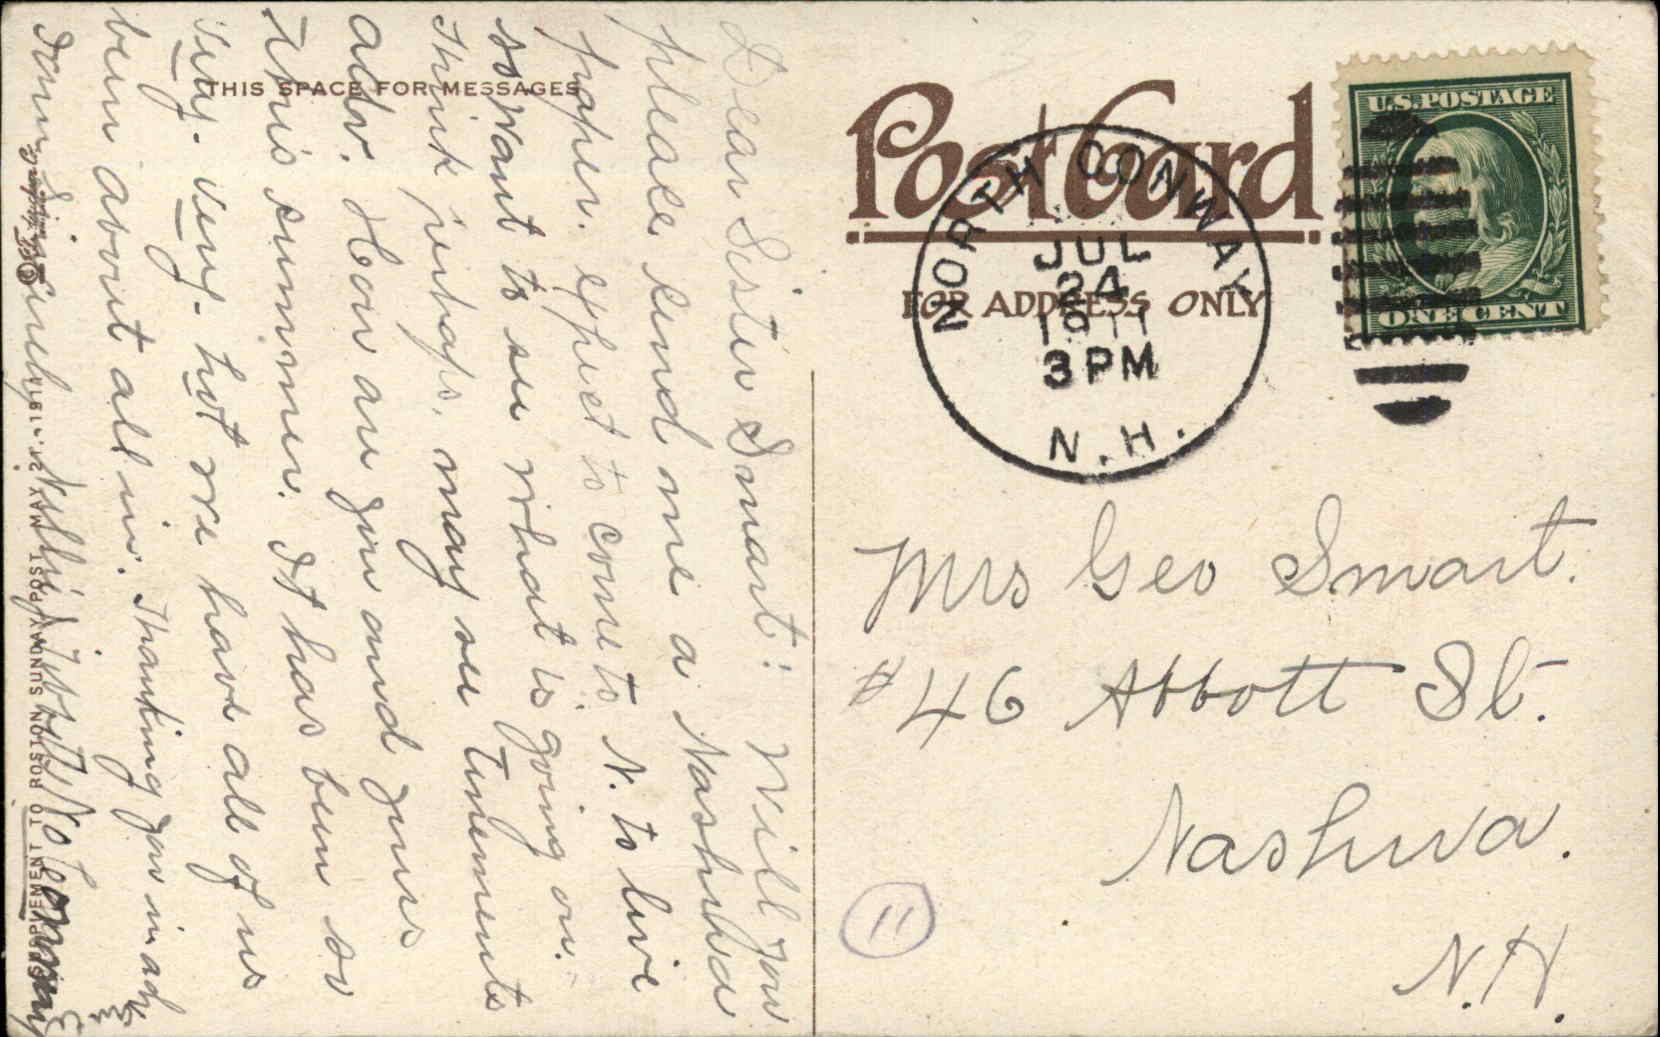 THIS SPACE FOR MESSAGES
Dear Sister Smart: Will you
please send me a Nashua
paper. expect to come to N. to live
so want to see what is going on.
Think perhaps, may see tenements
adv. How are you and yours
this summer. It has been so
very, very- hot we have all of us
been about all in. Thanking you in adv
SUPPLEMENT TO BOSTON SUNDAY POST MAY 21, 1911.
Post Card
FOR ADDRESS ONLY
NORTH CONWAY
JUL
24
1911
3 PM
N.H.
U.S. POSTAGE
ONE CENT
Mrs Geo Smart.
#46 Abbott St.
Nashua.
N.H.
11